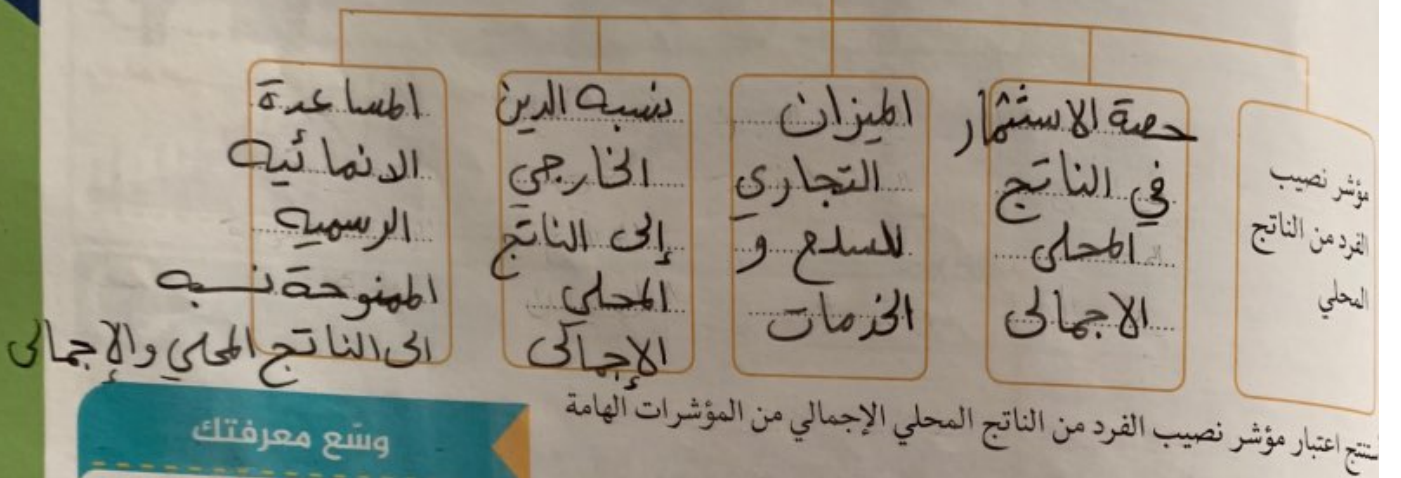 مؤشر نصيب
الفرد من الناتج
المحلي
حصة الاستثمار
في الناتج
المحلى
الاجمالى
الميزان
التجاري
للسلع و
الخدمات
نسبه الدين
الخارجي
إلى الناتج
المحلي
الإجمالى
المساعدة
الانمائيه
الرسميه
الممنوحة نسبه
الى الناتج المحلي والإجمالى
ستنتج اعتبار مؤشر نصيب الفرد من الناتج المحلي الإجمالي من المؤشرات الهامة
وسّع معرفتك